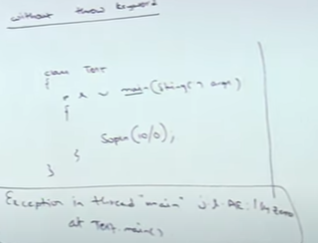 without throw keyword
class Test
{
p s v main(String[] args)
{
Sopln(10/0);
}
}
Exception in thread "main" j.l.AE: / by zero
at Test.main()